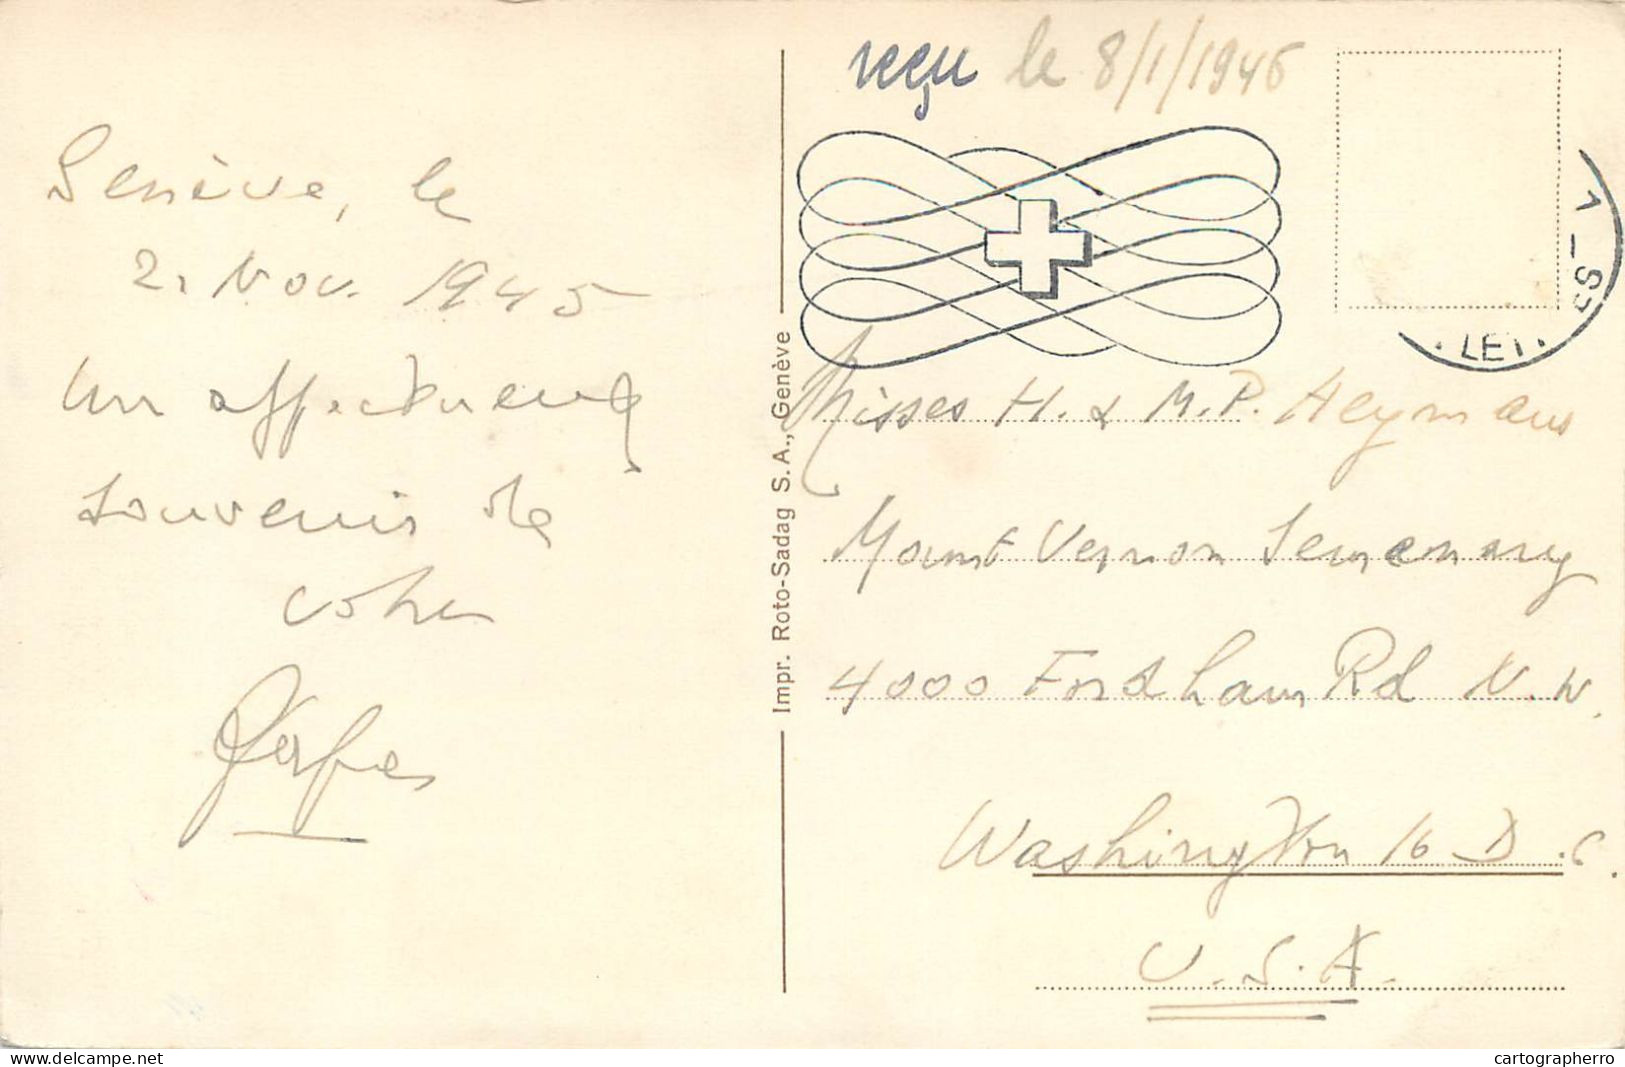 reçu le 8/1/1946
Genève, le
2. Nov. 1945
Un affectueux
souvenir de
votre
Impr. Roto-Sadag S.A., Genève
Misses H. & M.P. Heymans
Mount Vernon Semenary
4000 Fordham Rd N.W.
Washington 16 D.C.
U.S.A.
cartographerro